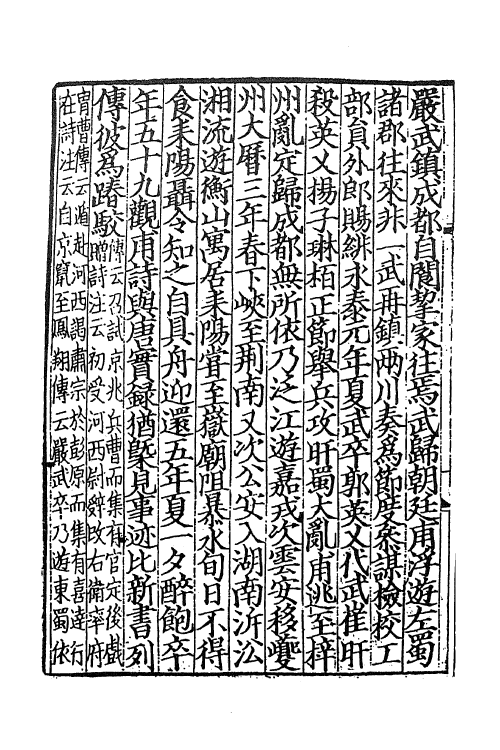 嚴武鎮成都自閬挈家往焉武歸朝廷甫浮遊左蜀
諸郡往來非一武再鎮兩川奏為節度叅謀檢校工
部員外郎賜緋永泰元年夏武卒郭英乂代武崔旰
殺英乂楊子琳栢正節舉兵攻旰蜀大亂甫逃至梓
州亂定歸成都無所依乃泛江遊嘉戎次雲安移夔
州大曆三年春下峽至荆南又次公安入湖南沂沿
湘流遊衡山寓居耒陽嘗至嶽廟阻暴水旬日不得
食耒陽聶令知之自具舟迎還五年夏一夕醉飽卒
年五十九觀甫詩與唐實録猶槩見事迹比新書列
傳彼為踳駮傳云召試京兆兵曹而集有官定後戲
贈詩注云初受河西尉辭改右衛率府
胄曹傳云遁赴河西謁肅宗於彭原而集有喜達行
在詩注云自京竄至鳳翔傳云嚴武卒乃遊東蜀依